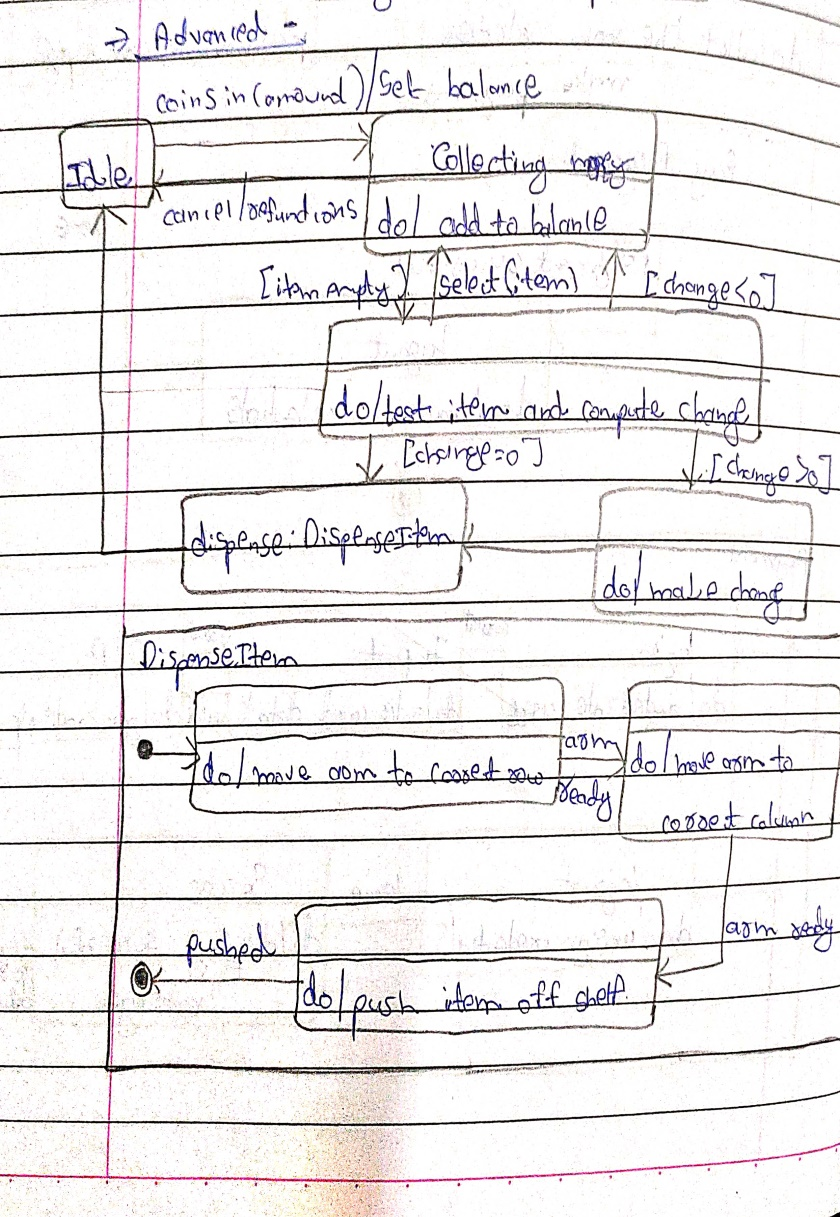 → Advanced -
coins in (amound) / set balance
Idle
Collecting money
cancel/refund coins
do/ add to balance
[item empty]
select(item)
[change<0]
do/test item and compute change
[change=0]
[change>0]
dispense: DispenseItem
do/ make change
DispenseItem
do/ move arm to correct row
arm
ready
do/ move arm to
correct column
arm ready
pushed
do/ push item off shelf.